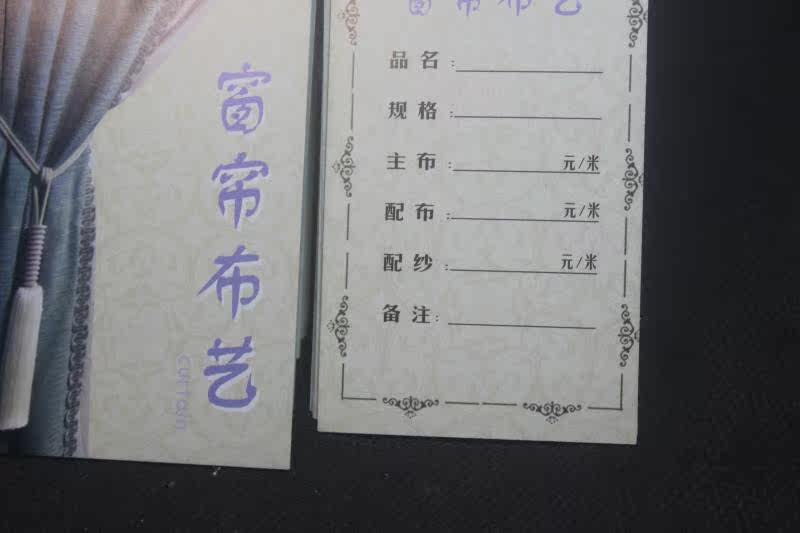 窗帘布艺
curtain
窗帘布艺
品名:
规格:
主布: 元/米
配布: 元/米
配纱: 元/米
备注: